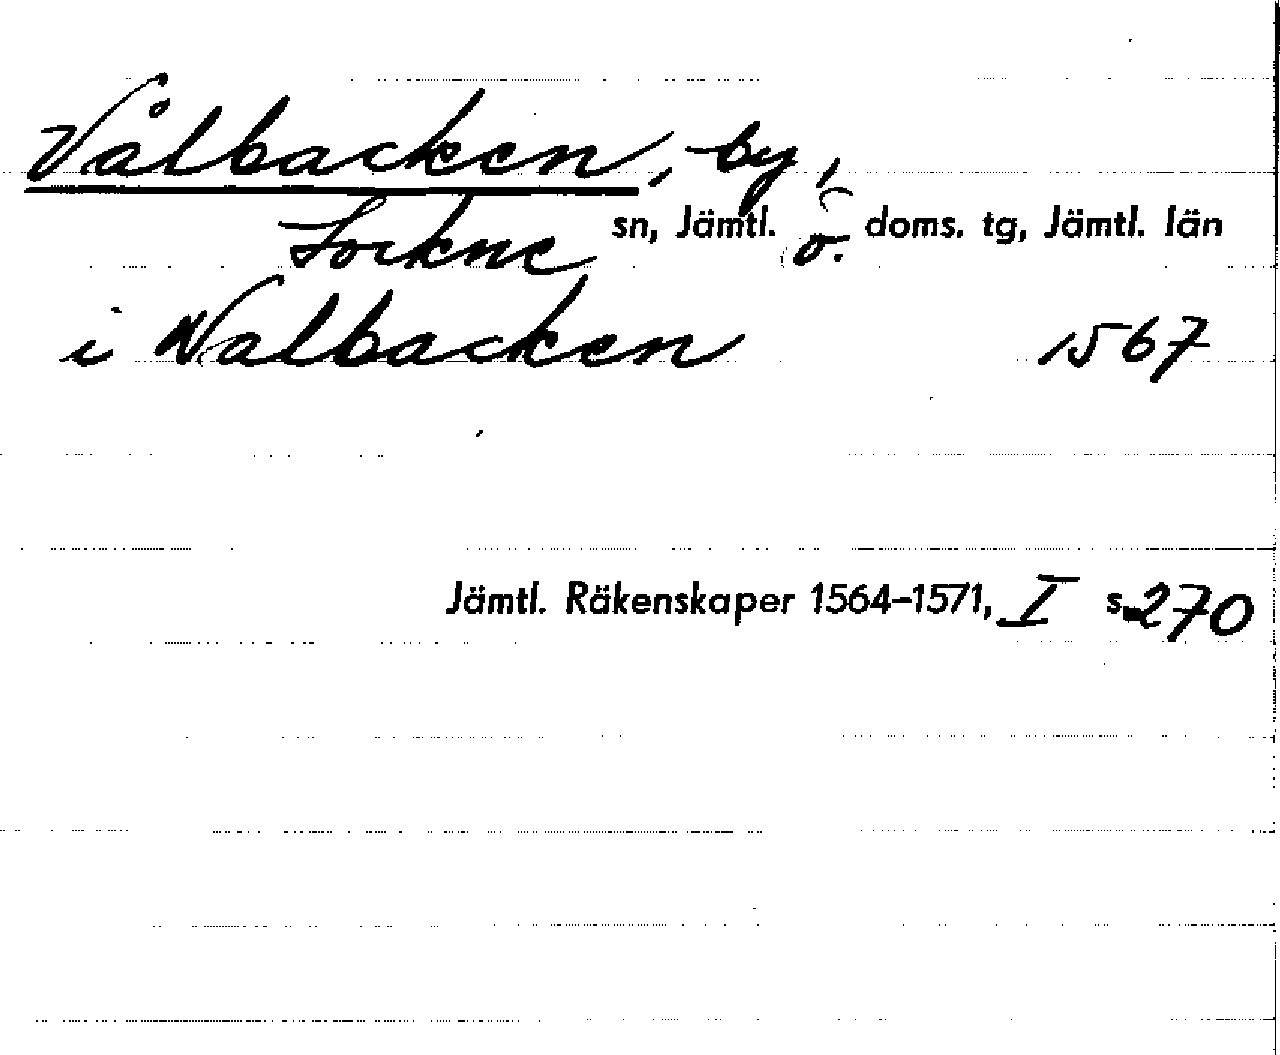 Vålbacken, by,
Lockne sn, Jämtl. ö. doms. tg, Jämtl. län
i Walbacken 1567
Jämtl. Räkenskaper 1564-1571, I s. 270